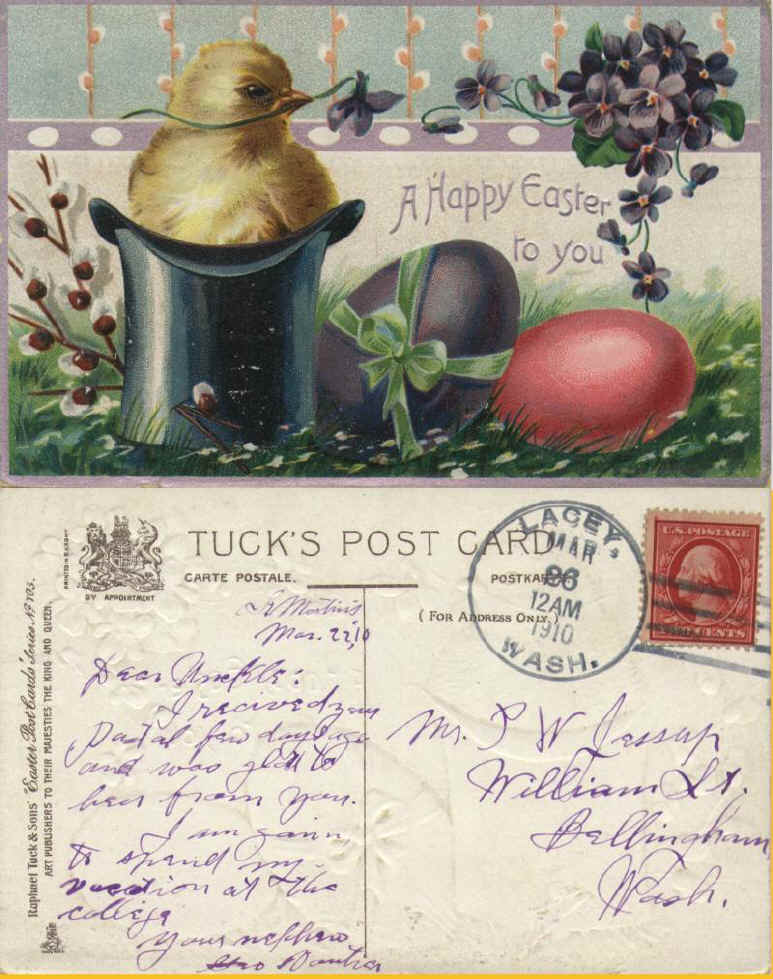 A Happy Easter
to you
TUCK'S POST CARD
CARTE POSTALE.
POSTKARTE
(FOR ADDRESS ONLY.)
BY APPOINTMENT
Raphael Tuck & Sons' "Easter Post Cards" Series No 105.
ART PUBLISHERS TO THEIR MAJESTIES THE KING AND QUEEN.
LACEY,
MAR
26
12AM
1910
WASH.
U.S. POSTAGE
CENTS
St Martins
Mar. 22, 10
Dear Unckle:
I recived your
Postal few days ago
and was glad to
hear from you.
I am goin
to spend my
vacation at the
college
Your nephew
Mr. P W Jessup
William St.
Bellingham
Wash.